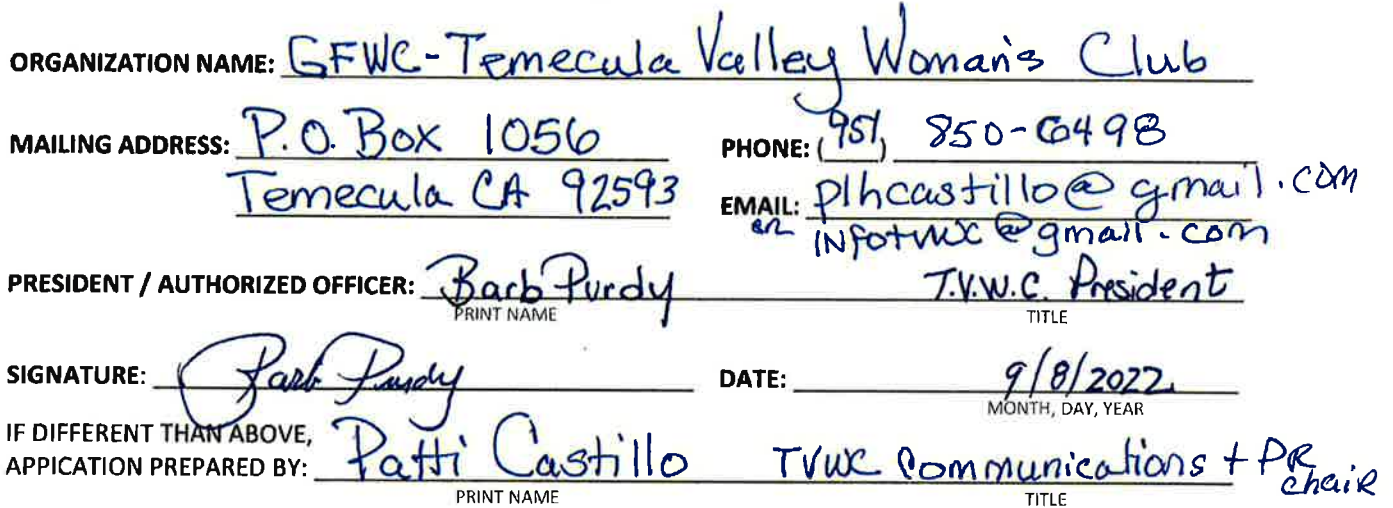 ORGANIZATION NAME: GFWC-Temecula Valley Woman's Club
MAILING ADDRESS: P.O. Box 1056 PHONE: (951) 850-6498
Temecula CA 92593 EMAIL: plhcastillo@gmail.com
or infotvwc@gmail.com
PRESIDENT / AUTHORIZED OFFICER: Barb Purdy T.V.W.C. President
PRINT NAME TITLE
SIGNATURE: Barb Purdy DATE: 9/8/2022
MONTH, DAY, YEAR
IF DIFFERENT THAN ABOVE,
APPICATION PREPARED BY: Patti Castillo TVWC Communications + PR chair
PRINT NAME TITLE